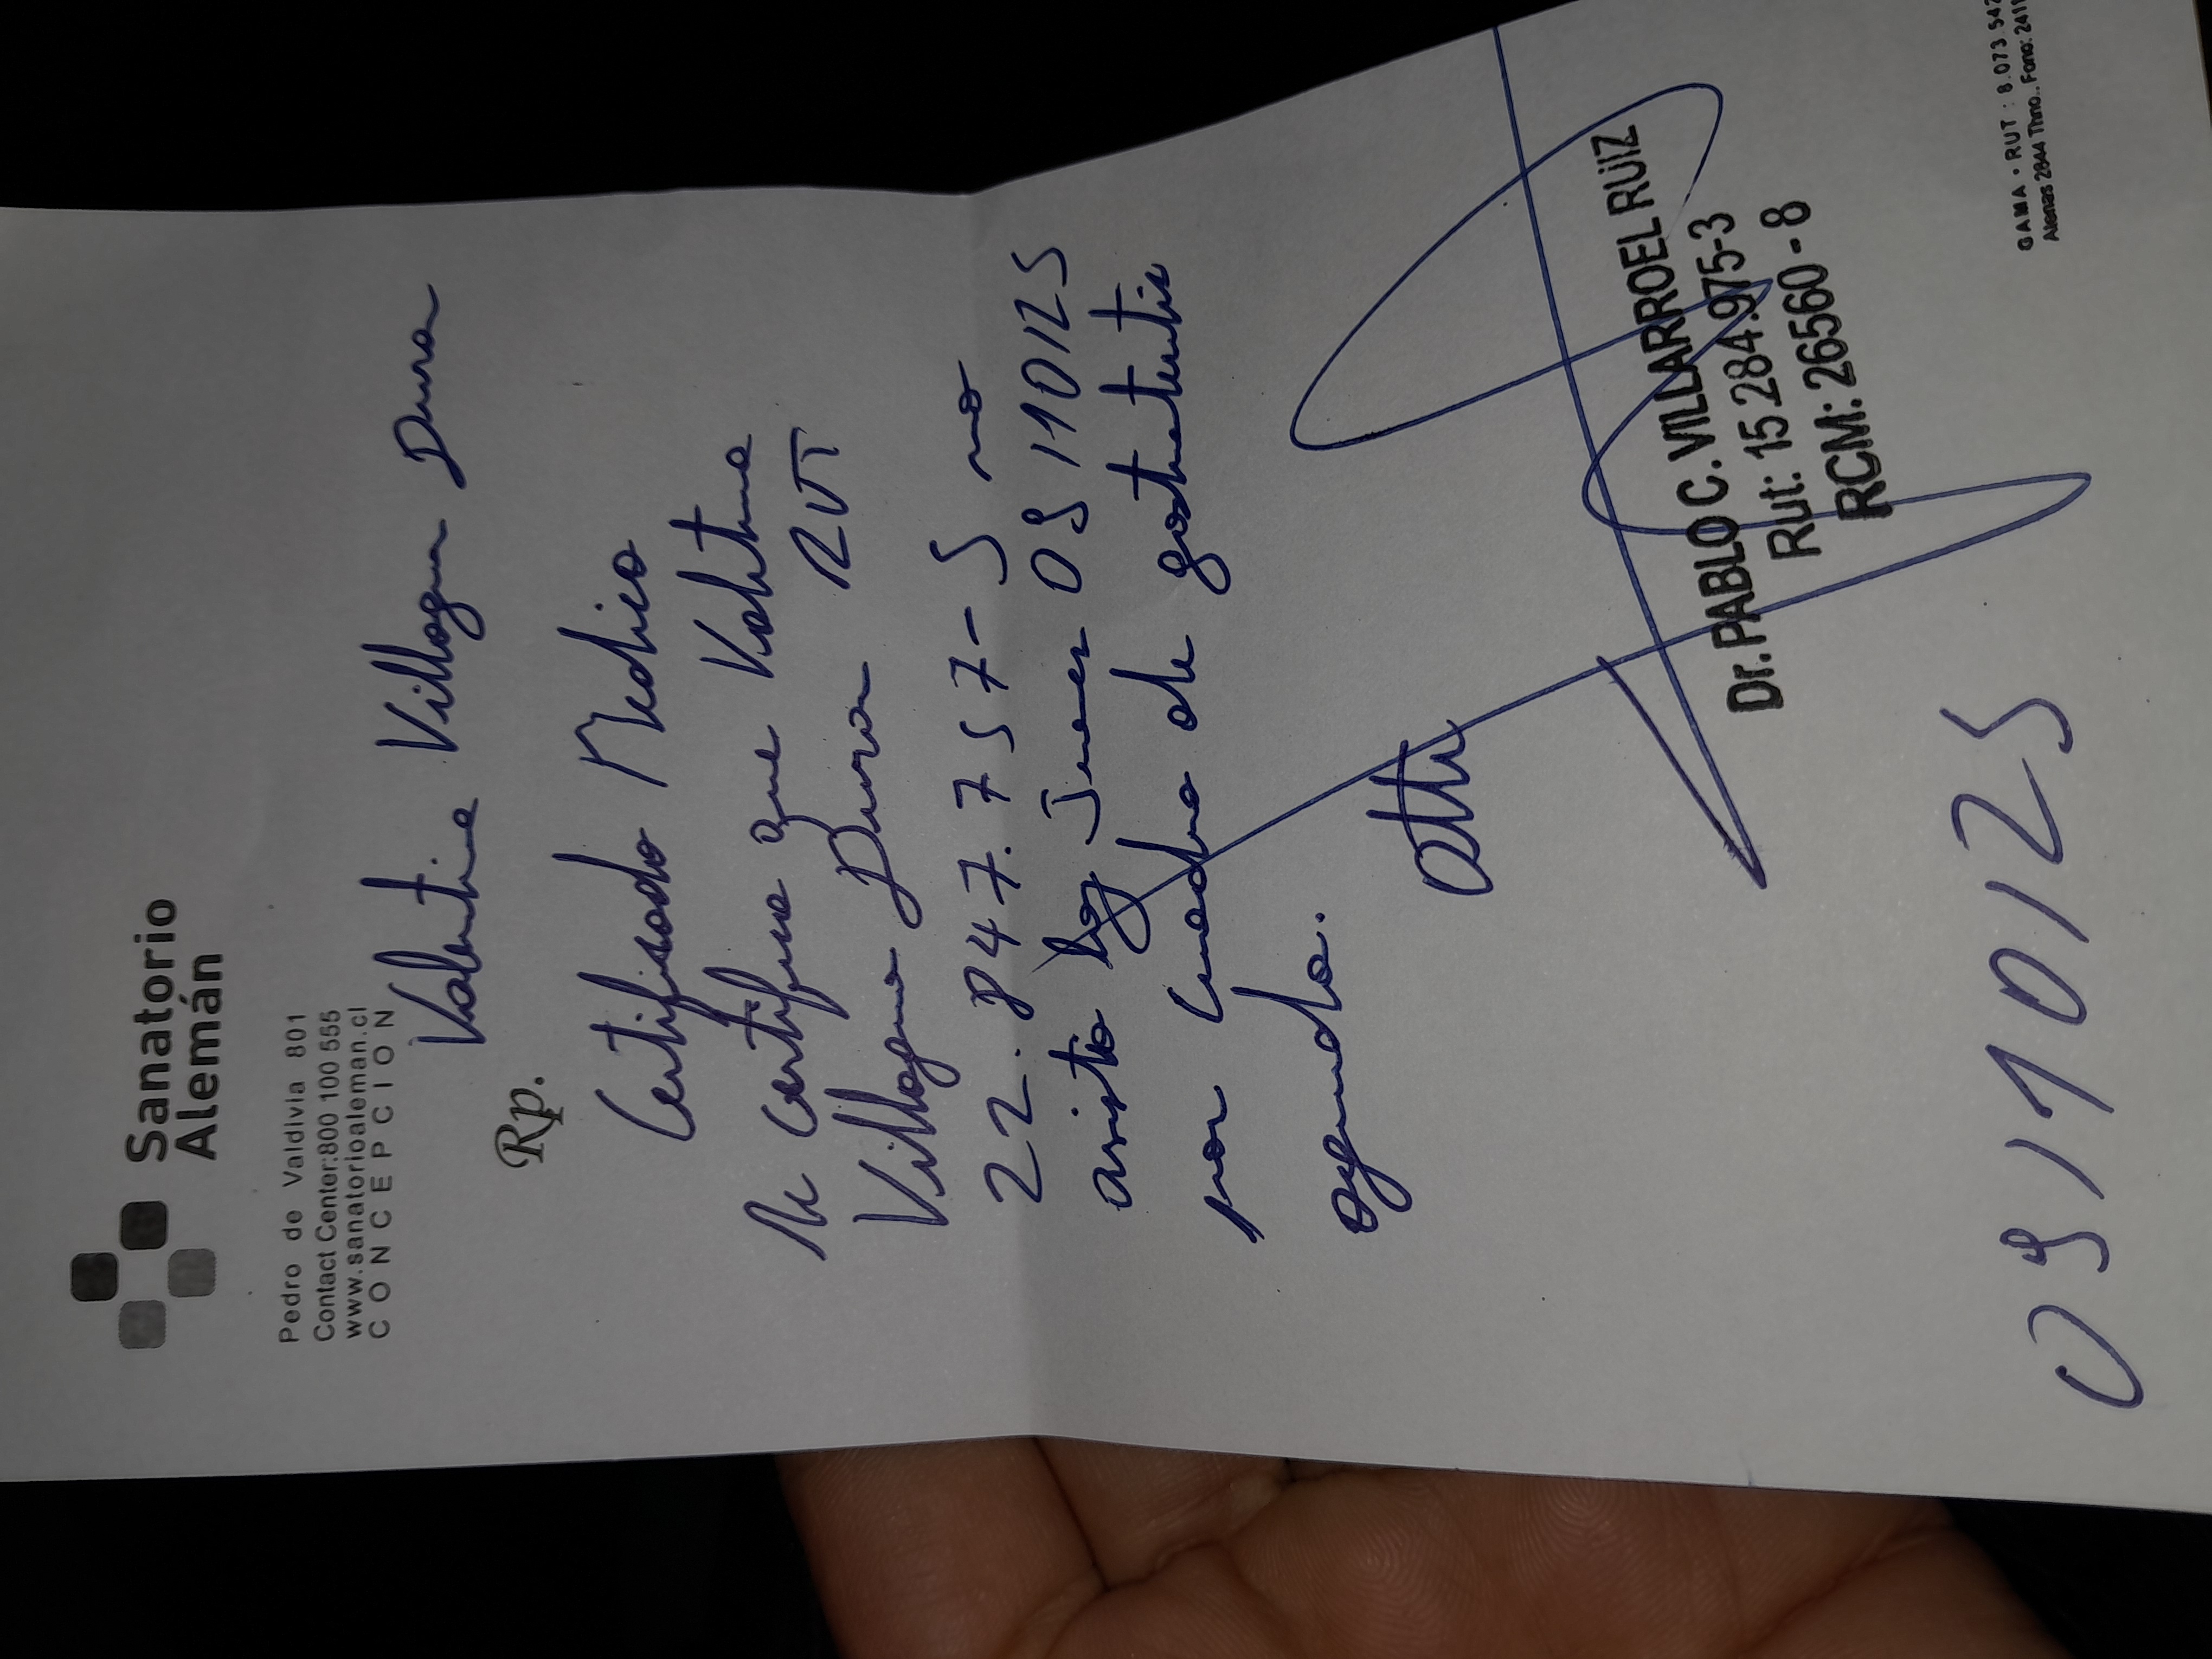 Sanatorio
Alemán
Pedro de Valdivia 801
Contact Center:800 100 555
www.sanatorioaleman.cl
CONCEPCION
Valentina Villagra Duran
Rp.
Certificado Medico
Se Certifica que Valentina
Villagra Duran RUT
22.847.757-5 no
asistio hoy Jueves 09/10/25
por Cuadro de gastroenteritis
aguda.
Atte
Dr. PABLO C. VILLARROEL RUIZ
Rut: 15.284.975-3
RCM: 26560-8
09/10/25
GAMA • RUT : 8.073.542
Atenas 2844 Thno.. Fono: 2411